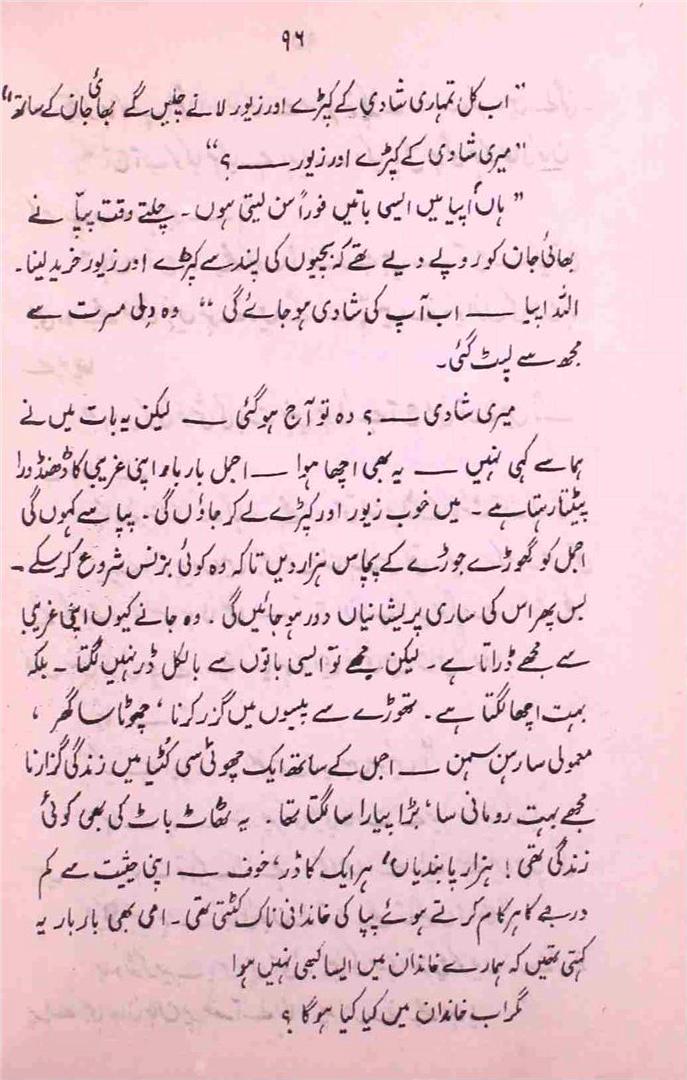 ۹۶
"اب کل تمہاری شادی کے کپڑے اور زیور لانے چلیں گے بھائی جان کے ساتھ"
"میری شادی کے کپڑے اور زیور ــــ ؟"
"ہاں اُپیا میں ایسی باتیں فوراً سن لیتی ہوں۔ چلتے وقت پپّا نے
بھائی جان کو روپے دیے تھے کہ بچیوں کی پسند سے کپڑے اور زیور خرید لینا۔
اللہ اپیا ــــ اب آپ کی شادی ہو جائے گی" وہ دِلی مسرت سے
مجھ سے لپٹ گئی۔
میری شادی ــــ ؟ وہ تو آج ہو گئی ــــ لیکن یہ بات میں نے
ہما سے کہی نہیں ــــ یہ بھی اچھا ہوا ــــ اجمل بار بار اپنی غریبی کا ڈھنڈورا
پیٹتا رہتا ہے۔ میں خوب زیور اور کپڑے لے کر جاؤں گی۔ پپا سے کہوں گی
اجمل کو گھوڑے جوڑے کے پچاس ہزار دیں تاکہ وہ کوئی بزنس شروع کر سکے۔
بس پھر اس کی ساری پریشانیاں دور ہو جائیں گی۔ وہ جانے کیوں اپنی غریبی
سے مجھے ڈراتا ہے۔ لیکن مجھے تو ایسی باتوں سے بالکل ڈر نہیں لگتا۔ بلکہ
بہت اچھا لگتا ہے۔ تھوڑے سے پیسوں میں گزر کرنا، چھوٹا سا گھر،
معمولی سا رہن سہن ــــ اجمل کے ساتھ ایک چھوٹی سی کٹیا میں زندگی گزارنا
مجھے بہت رومانی سا، بڑا پیارا سا لگتا تھا۔ یہ ٹھاٹ باٹ کی بھی کوئی
زندگی تھی! ہزار پابندیاں، ہر ایک کا ڈر، خوف ــــ اپنی حیثیت سے کم
درجے کا ہر کام کرتے ہوئے پپا کی خاندانی ناک کٹتی تھی۔ امی بھی بار بار یہ
کہتی تھیں کہ ہمارے خاندان میں ایسا کبھی نہیں ہوا
مگر اب خاندان میں کیا کیا ہوگا؟